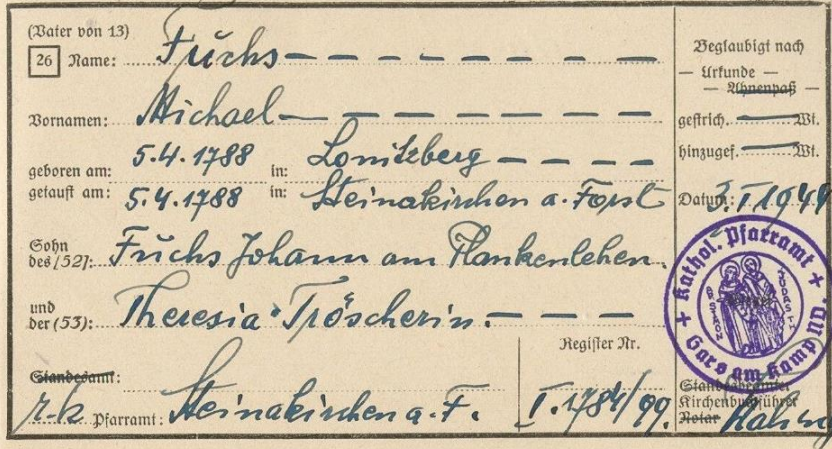 (Vater von 13)
26 Name: Fuchs
Vornamen: Michael
geboren am: 5.4.1788 in: Lonitzberg
getauft am: 5.4.1788 in: Steinakirchen a. Forst
Sohn des (52): Fuchs Johann am Plankenlehen.
und der (53): Theresia Tröscherin.
Standesamt:
r.k. Pfarramt: Steinakirchen a. F.
Register Nr.
I. 1784/99.
Beglaubigt nach
— Urkunde —
— Ahnenpaß —
gestrich. Wt.
hinzugef. Wt.
Datum: 3. I 1944
+ Kathol. Pfarramt +
Gars am Kamp ND.
Standesbeamter
Kirchenbuchführer
Notar